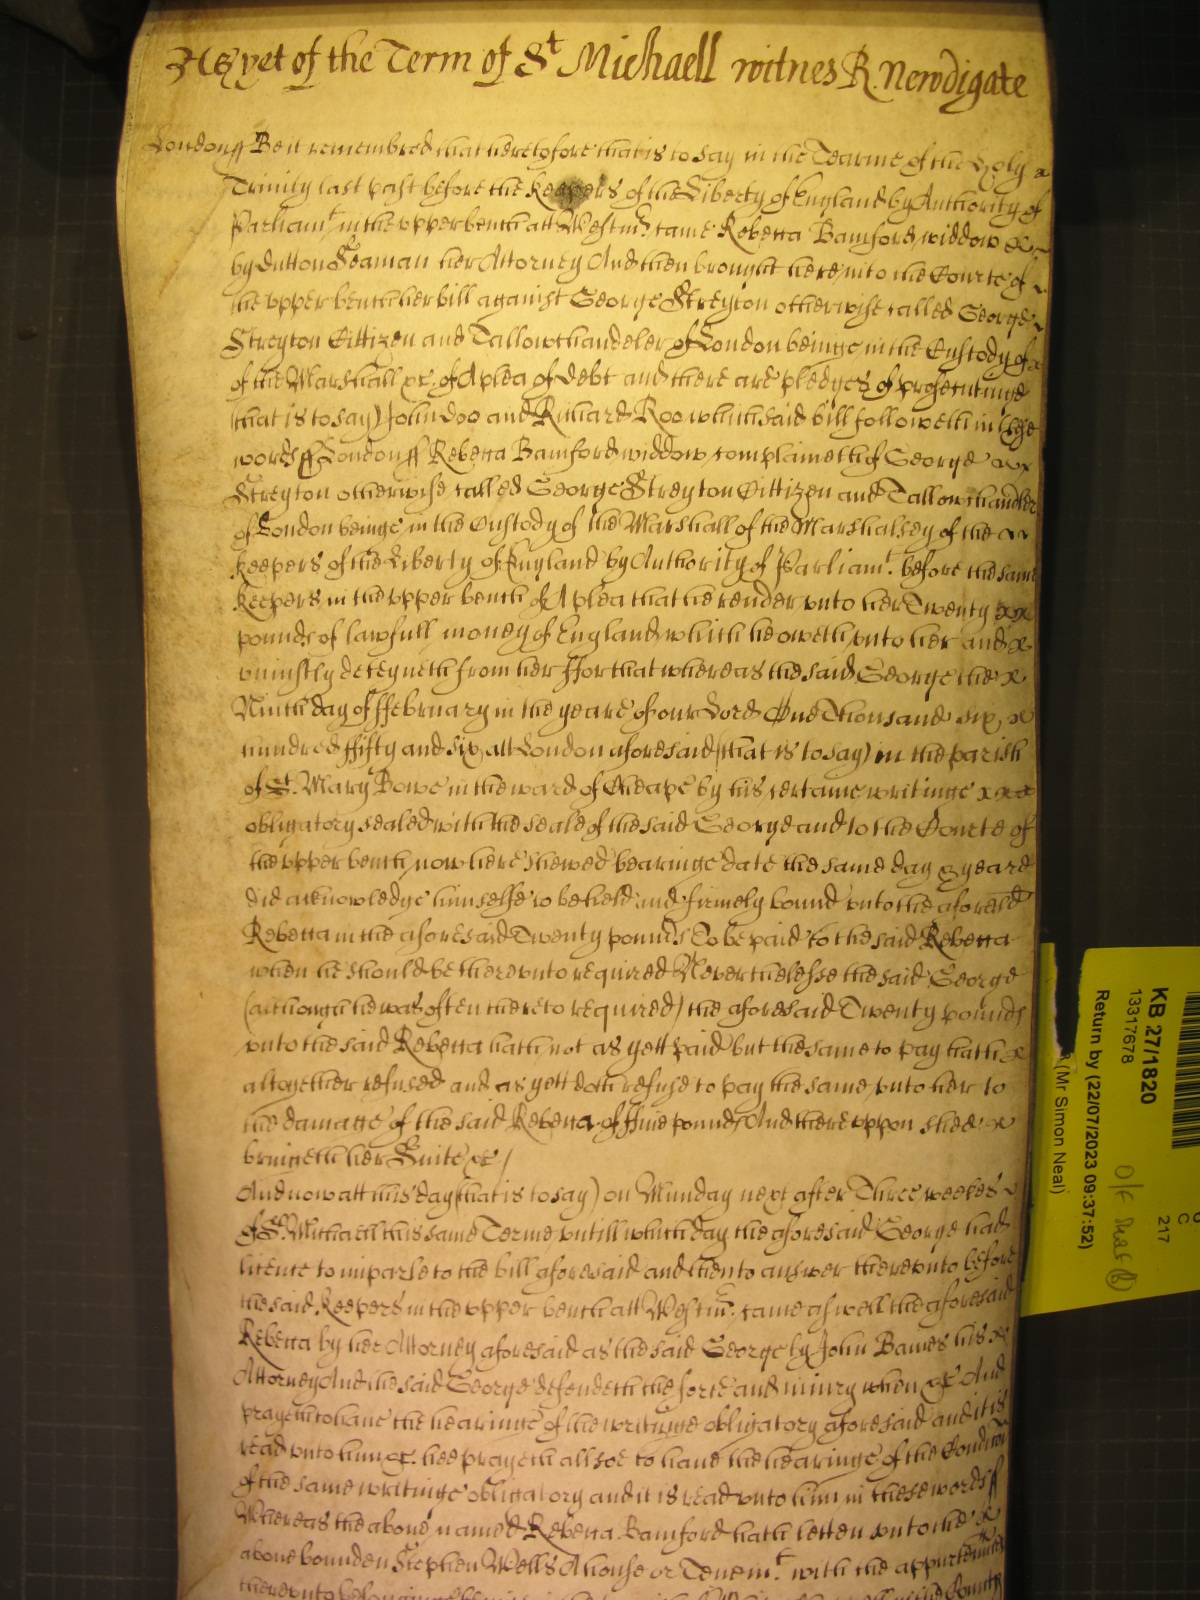 As yet of the Term of St Michaell witnes R. Newdigate
London ss Be it remembred that heretofore that is to say in the Tearme of the Holy
Trinity last past before the Keepers of the Liberty of England by Authority of
Parliamt. in the vpper bench att Westmr. came Rebecca Bamford widdow
by Dutton Seaman her Attorney And then brought here into the Courte of
the vpper bench her bill against George Streyton otherwise called George
Streyton Cittizen and Tallowchandeler of London beinge in the Custody of
of the Marshall &c. of A plea of debt and there are pledges of prosecutinge
(that is to say) John Doo and Richard Roo which said bill followeth in these
words ss London ss Rebecca Bamford widdow complaineth of George
Streyton otherwise called George Streyton Cittizen and Tallowchandler
of London beinge in the Custody of the Marshall of the Marshalsey of the
keepers of the Liberty of England by Authority of Parliamt. before the same
keepers in the vpper bench of A plea that he render vnto her Twenty
pounds of lawfull money of England which he oweth vnto her and
vniustly deteyneth from her ffor that whereas the said George the
Ninth day of ffebruary in the yeare of our Lord One Thousand six
hundred ffifty and six att London aforesaid (that is to say) in the parish
of St. Mary Bowe in the ward of Cheape by his certaine writinge
obligatory sealed with the seale of the said George and to the Courte of
the vpper bench now here shewed bearinge date the same day & yeare
did acknowledge himselfe to be held and firmely bound vnto the aforesd
Rebecca in the aforesaid Twenty pounds To be paid to the said Rebecca
when he should be therevnto required Neverthelesse the said George
(although he was often thereto required) the aforesaid Twenty pounds
vnto the said Rebecca hath not as yett paid but the same to pay hath
altogether refused and as yett doth refuse to pay the same vnto her to
the damage of the said Rebecca of ffive pounds And therevppon shee
bringeth her Suite &c /
And now att this day (that is to say) on Munday next after Three weekes
of St. Michaell this same Terme vntill which day the aforesaid George had
licence to imparle to the bill aforesaid and then to answer therevnto before
the said Keepers in the vpper bench att Westmr. came aswell the aforesaid
Rebecca by her Attorney aforesaid as the said George by John Baines his
Attorney And the said George defendeth the force and iniury when &c And
prayeth to haue the hearinge of the writinge obligatory aforesaid and it is
read vnto him &c. hee prayeth allsoe to haue the hearinge of the Condicon
of the same writinge obligatory and it is read vnto him in these words ss
Whereas the aboue named Rebecca Bamford hath letten vnto the
aboue bounden Stephen Wells A house or Tenemt. with the appurtenncs
therevnto belonginge
KB 27/1820
13317678
Return by (22/07/2023 09:37:52)
(Mr Simon Neal)
C
217